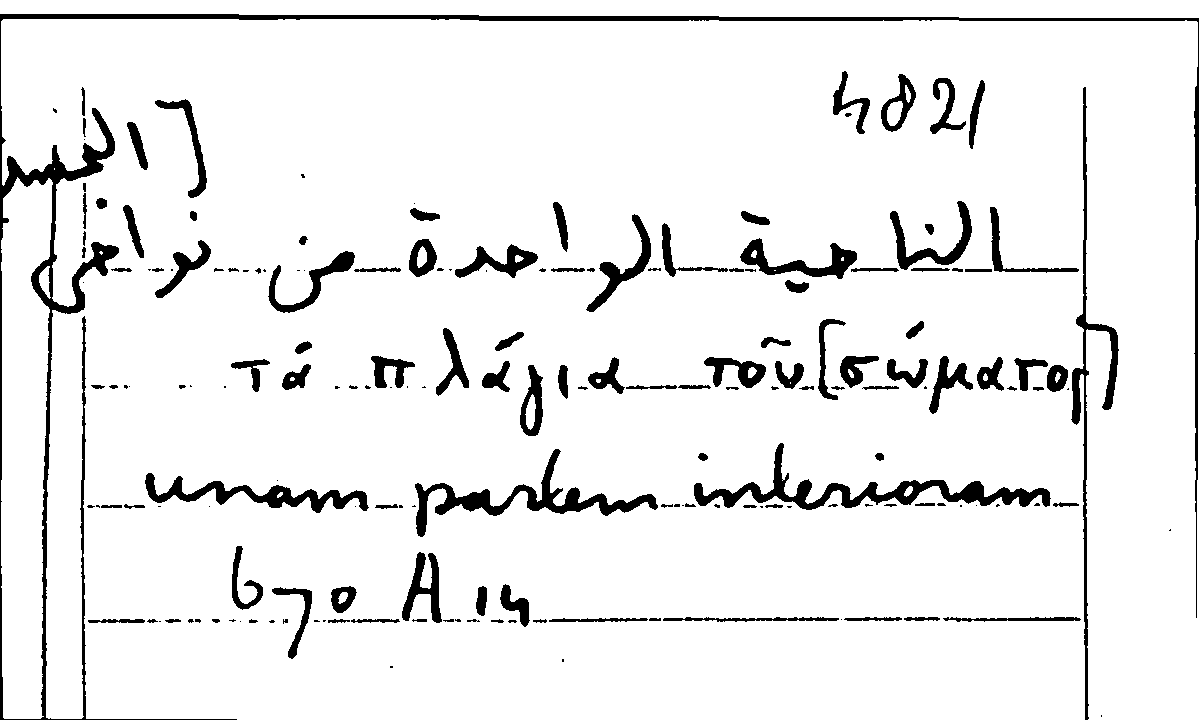 4821
الناحية الواحدة من نواحى
τά πλάγια τοῦ [σώματος]
unam partem interioram
670 A 14